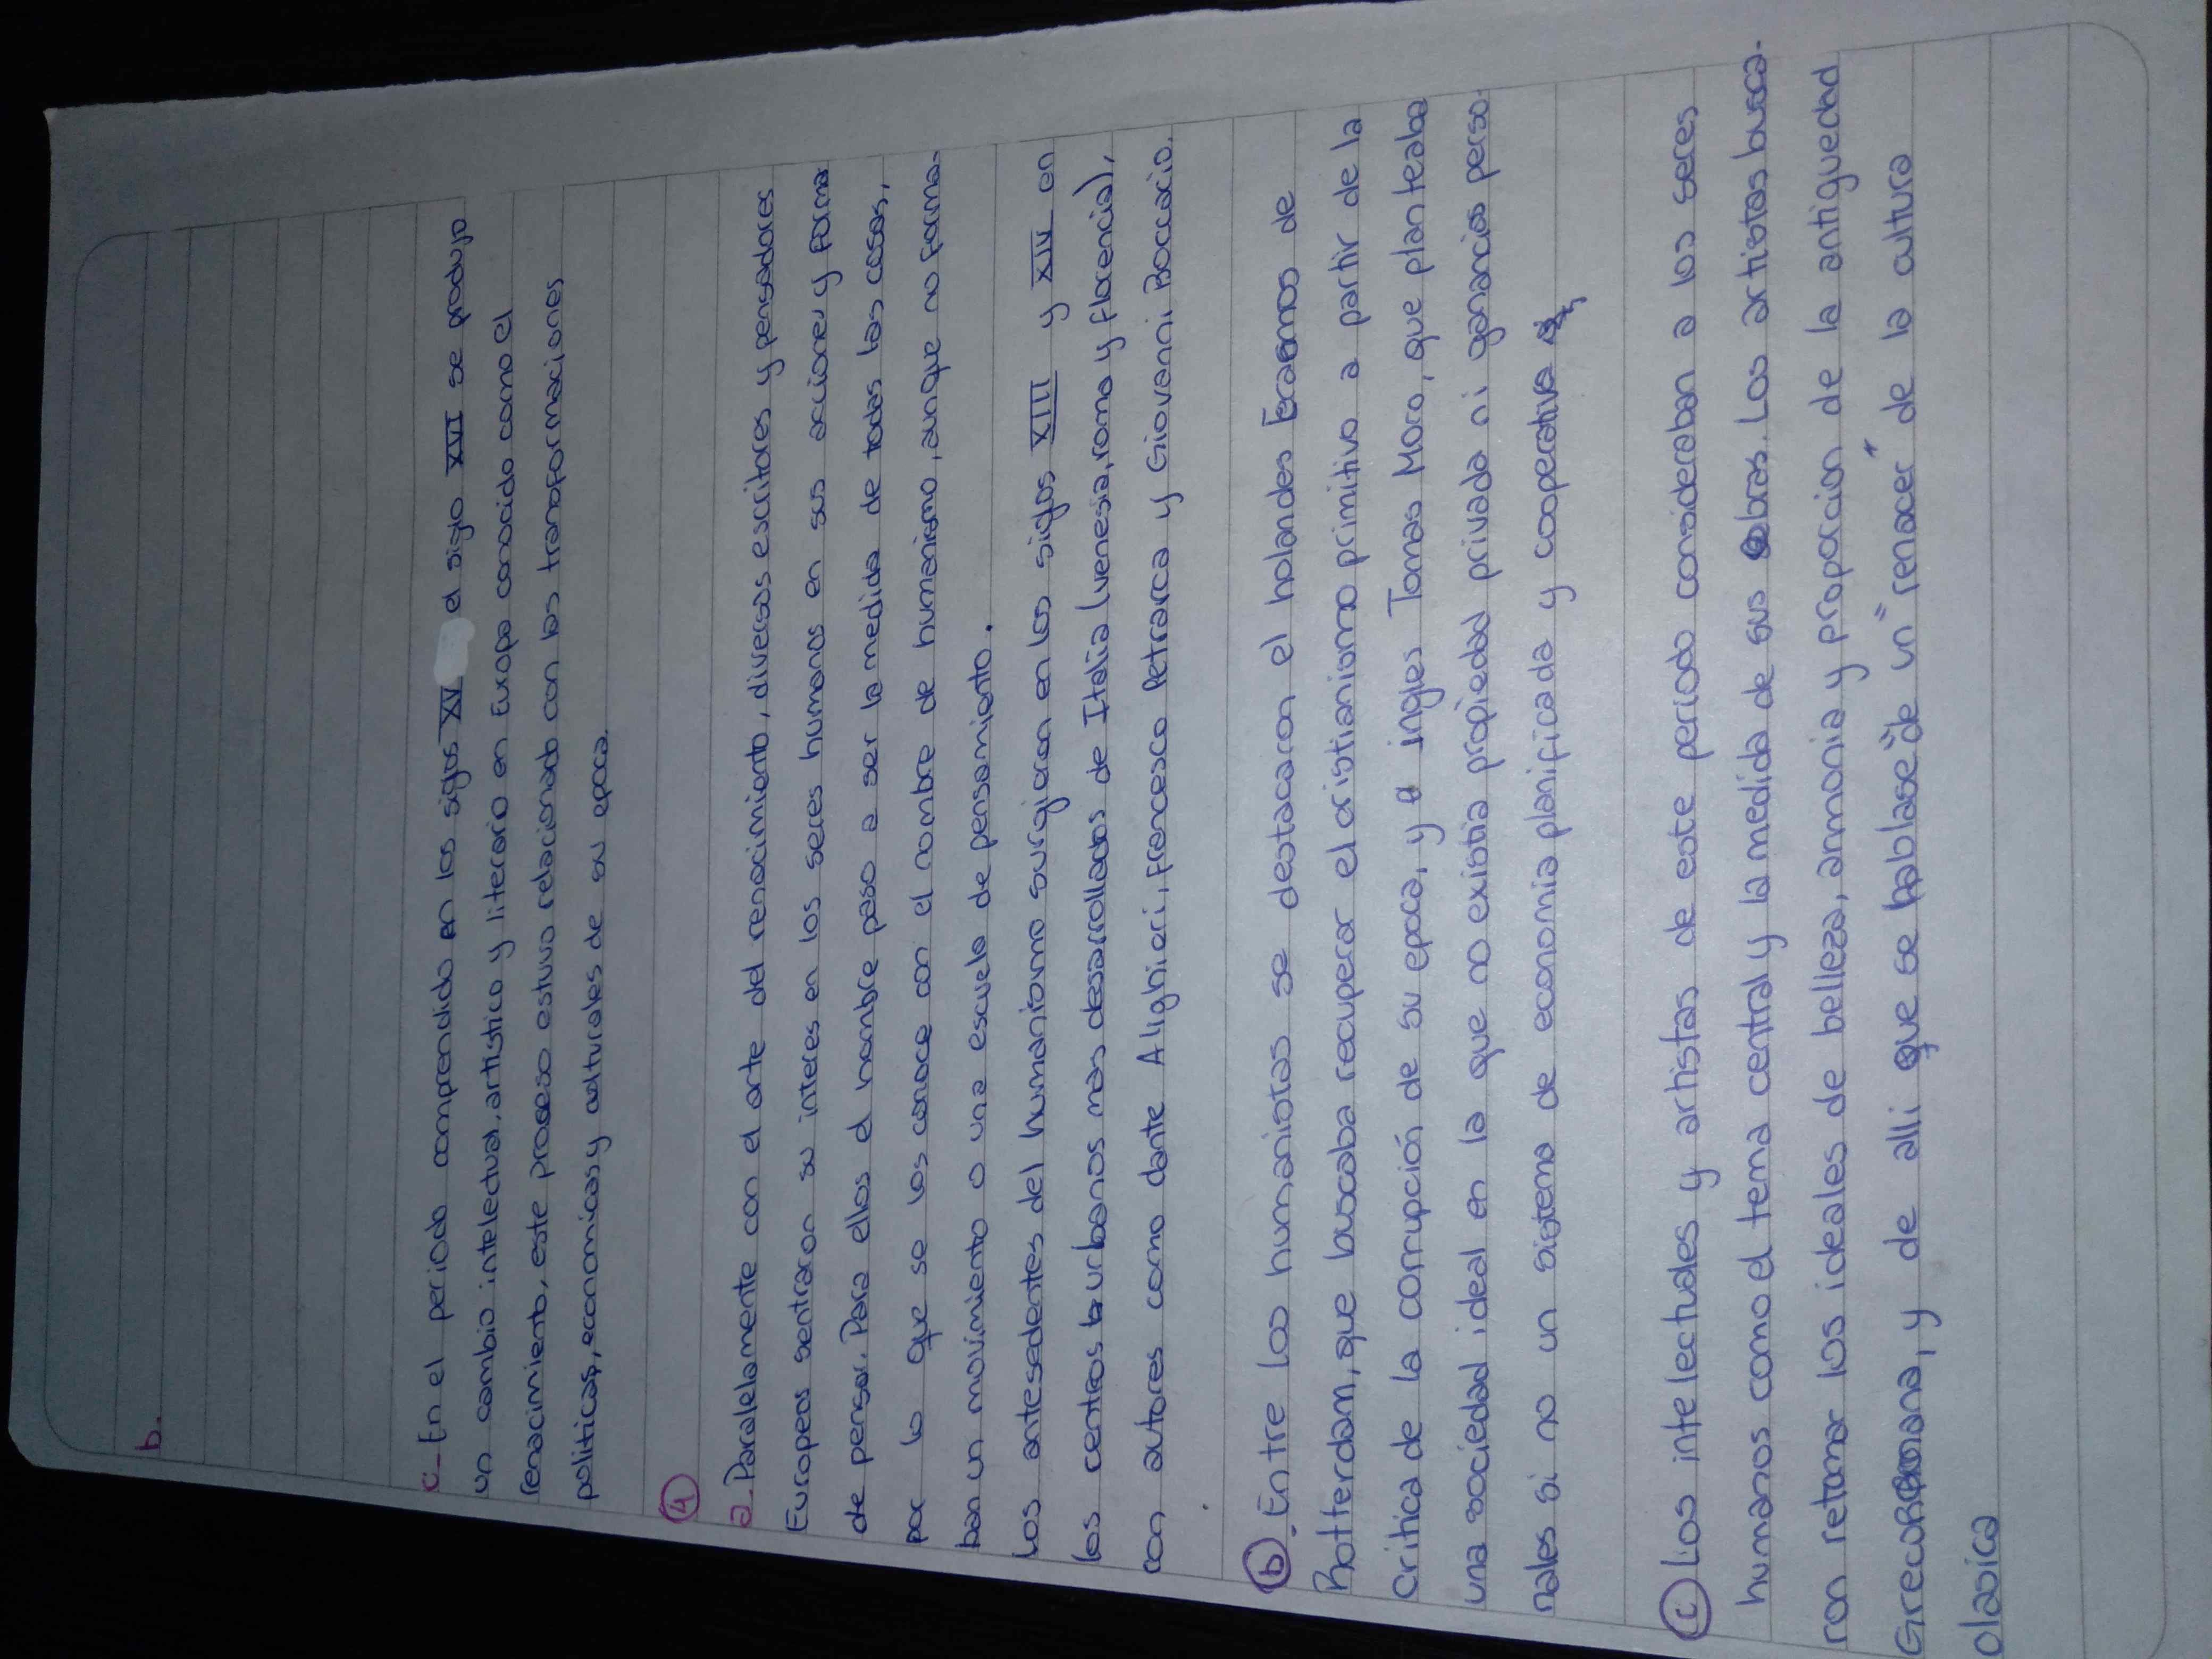 b.
c- En el periodo comprendido en los siglos XV el siglo XVI se produjo
un cambio intelectual, artistico y literario en Europa conocido como el
renacimiento, este proseso estuvo relacionado con las transformaciones
politicas, economicas y culturales de su epoca.
4
a- Paralelamente con el arte del renacimiento, diversos escritores y pensadores
Europeos sentraron su interes en los seres humanos en sus acciones y forma
de pensar. Para ellos el hombre paso a ser la medida de todas las cosas,
por lo que se los conoce con el nombre de humanismo, aunque no forma-
ban un movimiento o una escuela de pensamiento.
Los antesedentes del humanismo surgieron en los siglos XIII y XIV en
los centros urbanos mas desarrollados de Italia (venesia, roma y florencia),
con autores como dante Alighieri, francesco Petrarca y Giovanni Boccacio.
b. Entre los humanistas se destacaron el holandes Erasmos de
Rotterdam, que buscaba recuperar el cristianismo primitivo a partir de la
critica de la corrupción de su epoca, y el ingles Tomas Moro, que planteaba
una sociedad ideal en la que no existia propiedad privada ni ganancias perso-
nales si no un sistema de economia planificada y cooperativa
c Los intelectuales y artistas de este periodo consideraban a los seres
humanos como el tema central y la medida de sus obras. Los artistas busca-
ron retomar los ideales de belleza, armonia y proporcion de la antiguedad
Grecorromana, y de alli que se hablase de un "renacer" de la cultura
clasica